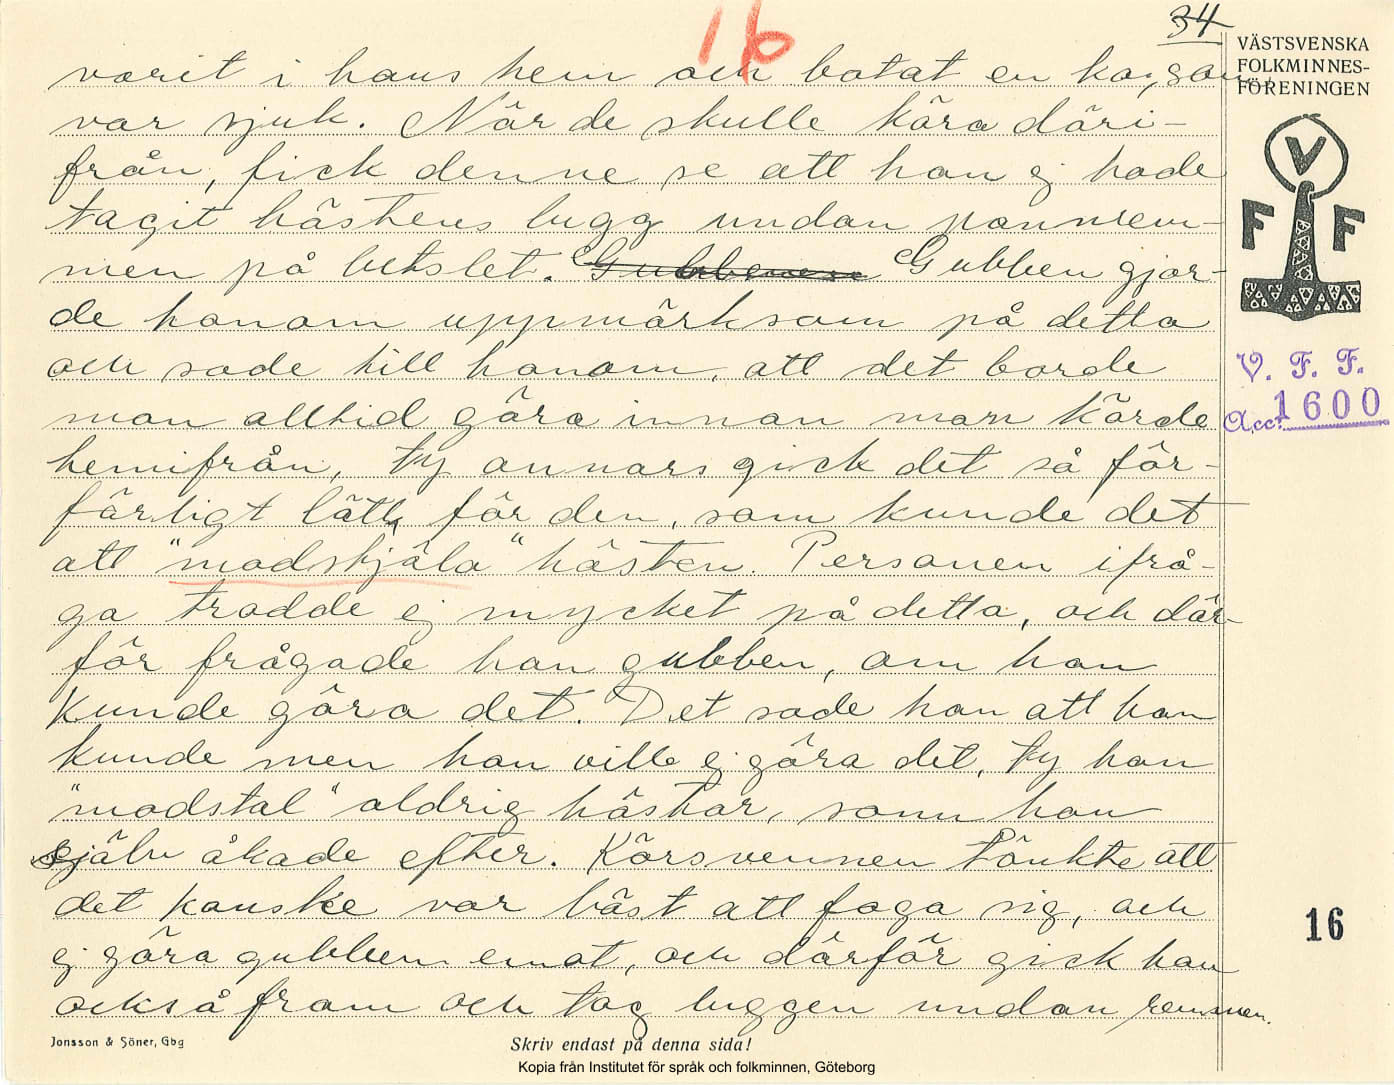 16
34
VÄSTSVENSKA
FOLKMINNES-
FÖRENINGEN
V
F F
V. F. F.
Acc. 1600
varit i hans hem och botat en ko, som
var sjuk. När de skulle köra däri-
från, fick denne se att han ej hade
tagit hästens lugg undan pannrem-
men på betslet. Gubben gjor-
de honom uppmärksam på detta
och sade till honom, att det borde
man alltid göra innan man körde
hemifrån, ty annars gick det så för-
färligt lätt, för den, som kunde det
att "modstjäla" hästen. Personen ifrå-
ga trodde ej mycket på detta, och där-
för frågade han gubben, om han
kunde göra det. Det sade han att han
kunde men han ville ej göra det, ty han
"modstal" aldrig hästar, som han
själv åkade efter. Körsvennen tänkte att
det kanske var bäst att foga sig, och
ej göra gubben emot, och därför gick han
också fram och tog luggen undan remmen.
16
Jonsson & Söner, Gbg
Skriv endast på denna sida!
Kopia från Institutet för språk och folkminnen, Göteborg